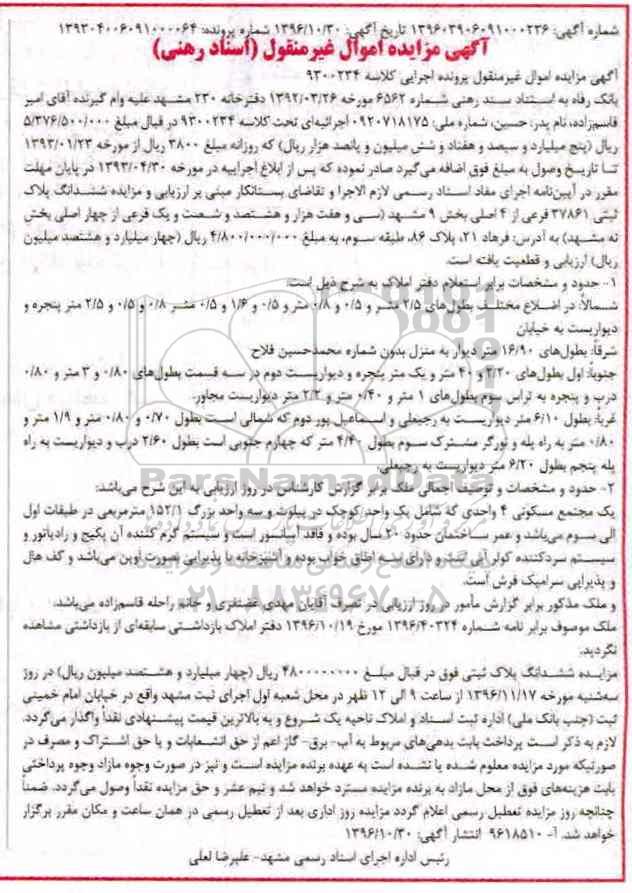 شماره آگهی: ۱۳۹۶۰۳۹۰۶۰۹۱۰۰۰۲۳۶ تاریخ آگهی: ۱۳۹۶/۱۰/۳۰ شماره پرونده: ۱۳۹۳۰۴۰۰۶۰۹۱۰۰۰۰۶۴
آگهی مزایده اموال غیرمنقول (اسناد رهنی)
آگهی مزایده اموال غیرمنقول پرونده اجرایی کلاسه ۹۳۰۰۲۳۴
بانک رفاه به استناد سند رهنی شماره ۶۵۶۲ مورخه ۱۳۹۲/۰۳/۲۶ دفترخانه ۲۳۰ مشهد علیه وام گیرنده آقای امیر
قاسم‌زاده، نام پدر: حسین، شماره ملی: ۰۹۲۰۷۱۸۱۷۵ اجرائیه‌ای تحت کلاسه ۹۳۰۰۲۳۴ در قبال مبلغ ۵/۳۷۶/۵۰۰/۰۰۰
ریال (پنج میلیارد و سیصد و هفتاد و شش میلیون و پانصد هزار ریال) که روزانه مبلغ ۳۸۰۰ ریال از مورخه ۱۳۹۳/۰۱/۲۳
تا تاریخ وصول به مبلغ فوق اضافه می‌گیرد صادر نموده که پس از ابلاغ اجراییه در مورخه ۱۳۹۳/۰۴/۳۰ در پایان مهلت
مقرر در آیین‌نامه اجرای مفاد اسناد رسمی لازم الاجرا و تقاضای بستانکار مبنی بر ارزیابی و مزایده ششدانگ پلاک
ثبتی ۳۷۸۶۱ فرعی از ۴ اصلی بخش ۹ مشهد (سی و هفت هزار و هشتصد و شصت و یک فرعی از چهار اصلی بخش
نه مشهد) به آدرس: فرهاد ۲۱، پلاک ۸۶، طبقه سوم، به مبلغ ۴/۸۰۰/۰۰۰/۰۰۰ ریال (چهار میلیارد و هشتصد میلیون
ریال) ارزیابی و قطعیت یافته است.
۱- حدود و مشخصات برابر استعلام دفتر املاک به شرح ذیل است:
شمالاً: در اضلاع مختلف بطول‌های ۲/۵ متر و ۰/۵ و ۰/۸ متر و ۰/۵ و ۱/۶ و ۰/۵ متر ۰/۸ و ۰/۵ و ۲/۵ متر پنجره و
دیواریست به خیابان
شرقاً: بطول‌های ۱۶/۹۰ متر دیوار به منزل بدون شماره محمدحسین فلاح
جنوباً: اول بطول‌های ۲/۲۰ و ۴۰ متر و یک متر پنجره و دیواریست دوم در سه قسمت بطول‌های ۰/۸۰ و ۳ متر و ۰/۸۰
درب و پنجره به تراس سوم بطول‌های ۱ متر و ۰/۴۰ متر و ۲/۲ متر دیواریست مجاور.
غرباً: بطول ۶/۱۰ متر دیواریست به رجبعلی و اسماعیل پور دوم که شمالی است بطول ۰/۷۰ و ۰/۸۰ متر و ۱/۹ متر و
۰/۸۰ متر به راه پله و نورگیر مشترک سوم بطول ۴/۴۰ متر که چهارم جنوبی است بطول ۲/۶۰ درب و دیواریست به راه
پله پنجم بطول ۶/۲۰ متر دیواریست به رجبعلی.
۲- حدود و مشخصات و توصیف اجمالی ملک برابر گزارش کارشناس در روز ارزیابی به این شرح می‌باشد:
یک مجتمع مسکونی ۴ واحدی که شامل یک واحد کوچک در پیلوت و سه واحد بزرگ ۱۵۲/۱ مترمربعی در طبقات اول
الی سوم می‌باشد و عمر ساختمان حدود ۲۰ سال بوده و فاقد آسانسور است و سیستم گرم کننده آن پکیج و رادیاتور و
سیستم سردکننده کولر آبی است و دارای سه اطاق خواب بوده و آشپزخانه با پذیرایی بصورت اوپن می‌باشد و کف هال
و پذیرایی سرامیک فرش است.
و ملک مذکور برابر گزارش مأمور در روز ارزیابی در تصرف آقایان مهدی غضنفری و خانم راحله قاسم‌زاده می‌باشد.
ملک موصوف برابر نامه شماره ۱۳۹۶/۴۰۳۲۴ مورخ ۱۳۹۶/۱۰/۱۹ دفتر املاک بازداشتی سابقه‌ای از بازداشتی مشاهده
نگردید.
مزایده ششدانگ پلاک ثبتی فوق در قبال مبلغ ۴۸۰۰۰۰۰۰۰۰ ریال (چهار میلیارد و هشتصد میلیون ریال) در روز
سه‌شنبه مورخه ۱۳۹۶/۱۱/۱۷ از ساعت ۹ الی ۱۲ ظهر در محل شعبه اول اجرای ثبت مشهد واقع در خیابان امام خمینی
ثبت (جنب بانک ملی) اداره ثبت اسناد و املاک ناحیه یک شروع و به بالاترین قیمت پیشنهادی نقداً واگذار می‌گردد.
لازم به ذکر است پرداخت بابت بدهی‌های مربوط به آب- برق- گاز اعم از حق انشعابات و یا حق اشتراک و مصرف در
صورتیکه مورد مزایده معلوم شده یا نشده است به عهده برنده مزایده است و نیز در صورت وجوه مازاد وجوه پرداختی
بابت هزینه‌های فوق از محل مازاد به برنده مزایده مسترد خواهد شد و نیم عشر و حق مزایده نقداً وصول می‌گردد. ضمناً
چنانچه روز مزایده تعطیل رسمی اعلام گردد مزایده روز اداری بعد از تعطیل رسمی در همان ساعت و مکان مقرر برگزار
خواهد شد. آ- ۹۶۱۸۵۱۰ انتشار آگهی: ۱۳۹۶/۱۰/۳۰
رئیس اداره اجرای اسناد رسمی مشهد- علیرضا لعلی
ParsNamadData
۰۲۱-۸۸۳۴۹۶۷۰-۵